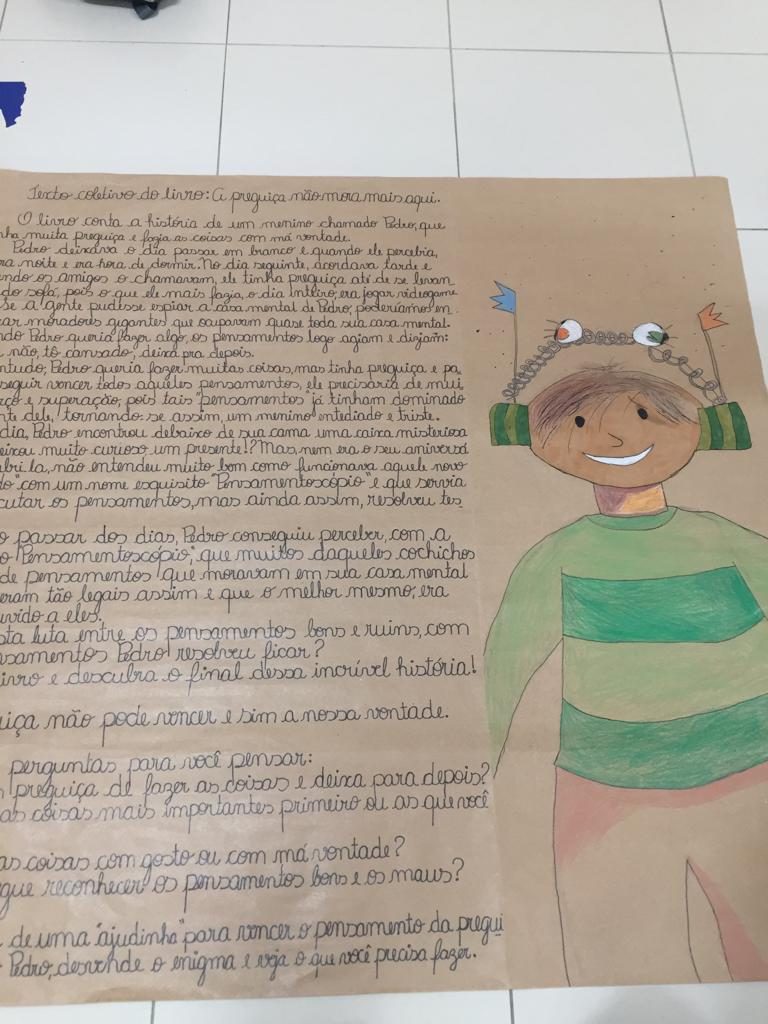 Texto coletivo do livro: A preguiça não mora mais aqui.
O livro conta a história de um menino chamado Pedro, que
nha muita preguiça e fazia as coisas com má vontade.
Pedro deixava o dia passar em branco e quando ele percebia,
ra noite e era hora de dormir. No dia seguinte, acordava tarde e
ndo os amigos o chamavam, ele tinha preguiça até de se levan
do sofá, pois o que ele mais fazia, o dia inteiro, era jogar videogame
se a gente pudesse espiar a casa mental de Pedro, poderíamos en
rar moradores gigantes que ocupavam quase toda sua casa mental.
ndo Pedro queria fazer algo, os pensamentos logo agiam e diziam:
não, tô cansado, deixa pra depois.
ntudo, Pedro queria fazer muitas coisas, mas tinha preguiça e pa
seguir vencer todos aqueles pensamentos, ele precisaria de mui
rço e superação, pois tais "pensamentos" já tinham dominado
nte dele, tornando-se assim, um menino entediado e triste.
dia, Pedro encontrou debaixo de sua cama uma caixa misteriosa
deixou muito curioso um presente!? Mas nem era o seu aniversá
abri-la, não entendeu muito bem como funcionava aquele novo
do" com um nome esquisito "Pensamentoscópio" e que servia
cutar os pensamentos, mas ainda assim, resolveu tes
o passar dos dias, Pedro conseguiu perceber, com a
o "Pensamentoscópio", que muitos daqueles cochichos
de pensamentos que moravam em sua casa mental
eram tão legais assim e que o melhor mesmo, era
uvido a eles.
sta luta entre os pensamentos bons e ruins, com
nsamentos Pedro resolveu ficar?
livro e descubra o final dessa incrível história!
uiça não pode vencer e sim a nossa vontade.
perguntas para você pensar:
preguiça de fazer as coisas e deixa para depois?
as coisas mais importantes primeiro ou as que você
as coisas com gosto ou com má vontade?
gue reconhecer os pensamentos bons e os maus?
de uma "ajudinha" para vencer o pensamento da pregui
Pedro, desvende o enigma e veja o que você precisa fazer.